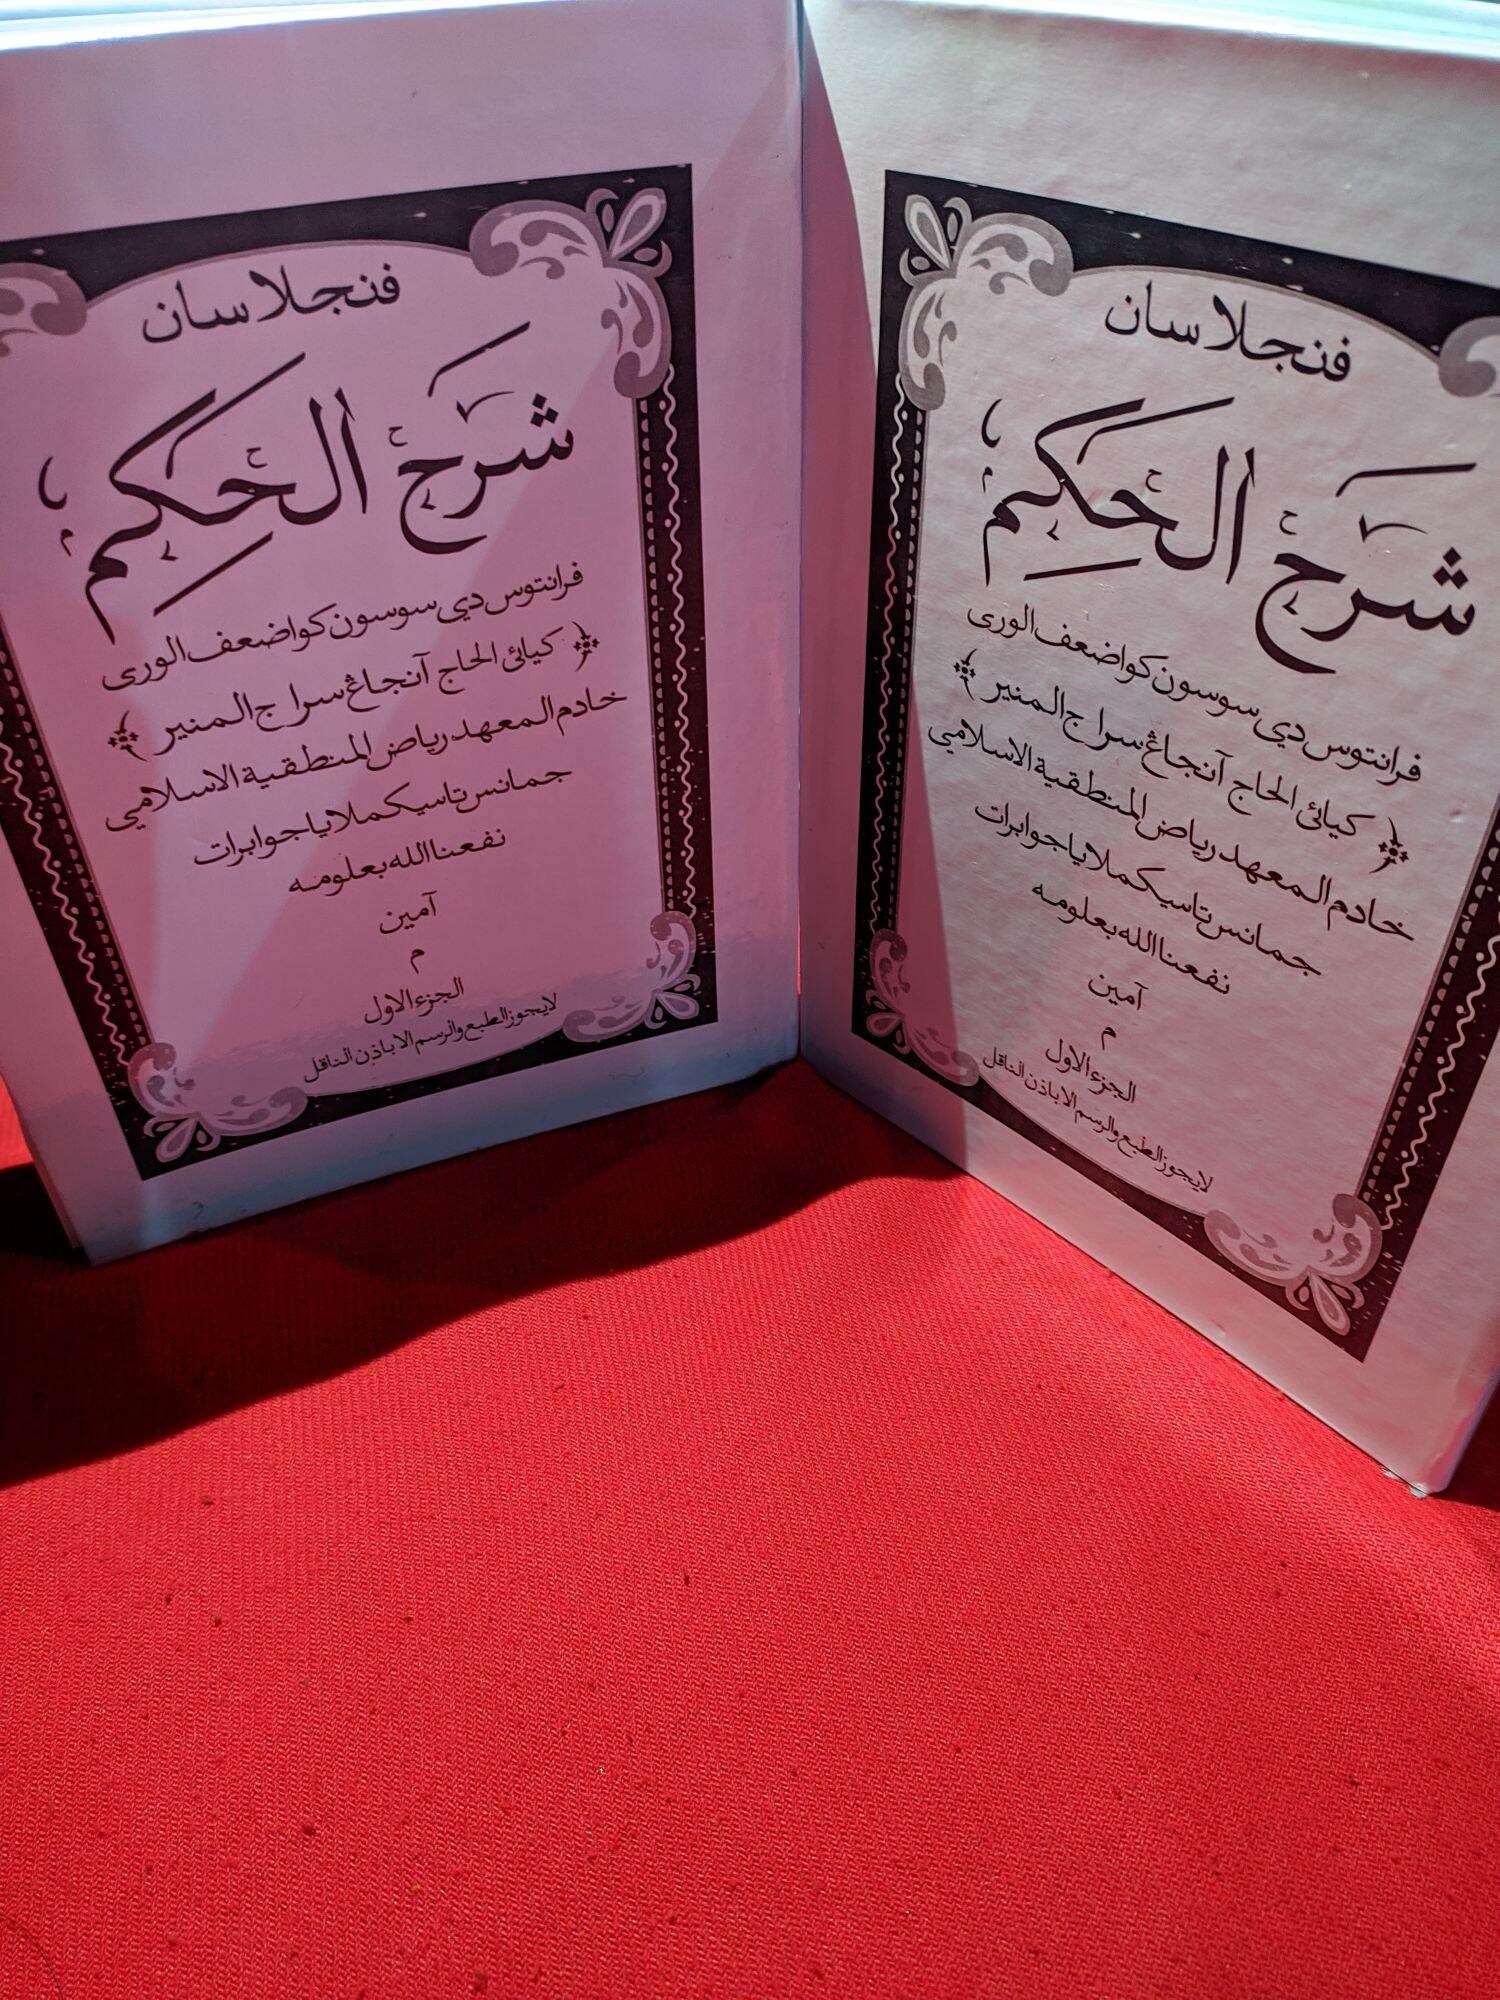 فنجلاسان
شرح الحكم
فرانتوس دي سوسون كو اضعف الورى
﴿ كيائي الحاج آنجاڠ سراج المنير ﴾
خادم المعهد رياض المنطقية الاسلامي
جمانس تاسيكملايا جوا برات
نفعنا الله بعلومه
آمين
م
الجزء الاول
لايجوز الطبع والرسم الا باذن الناقل
فنجلاسان
شرح الحكم
فرانتوس دي سوسون كو اضعف الورى
﴿ كيائي الحاج آنجاڠ سراج المنير ﴾
خادم المعهد رياض المنطقية الاسلامي
جمانس تاسيكملايا جوا برات
نفعنا الله بعلومه
آمين
م
الجزء الاول
لايجوز الطبع والرسم الا باذن الناقل